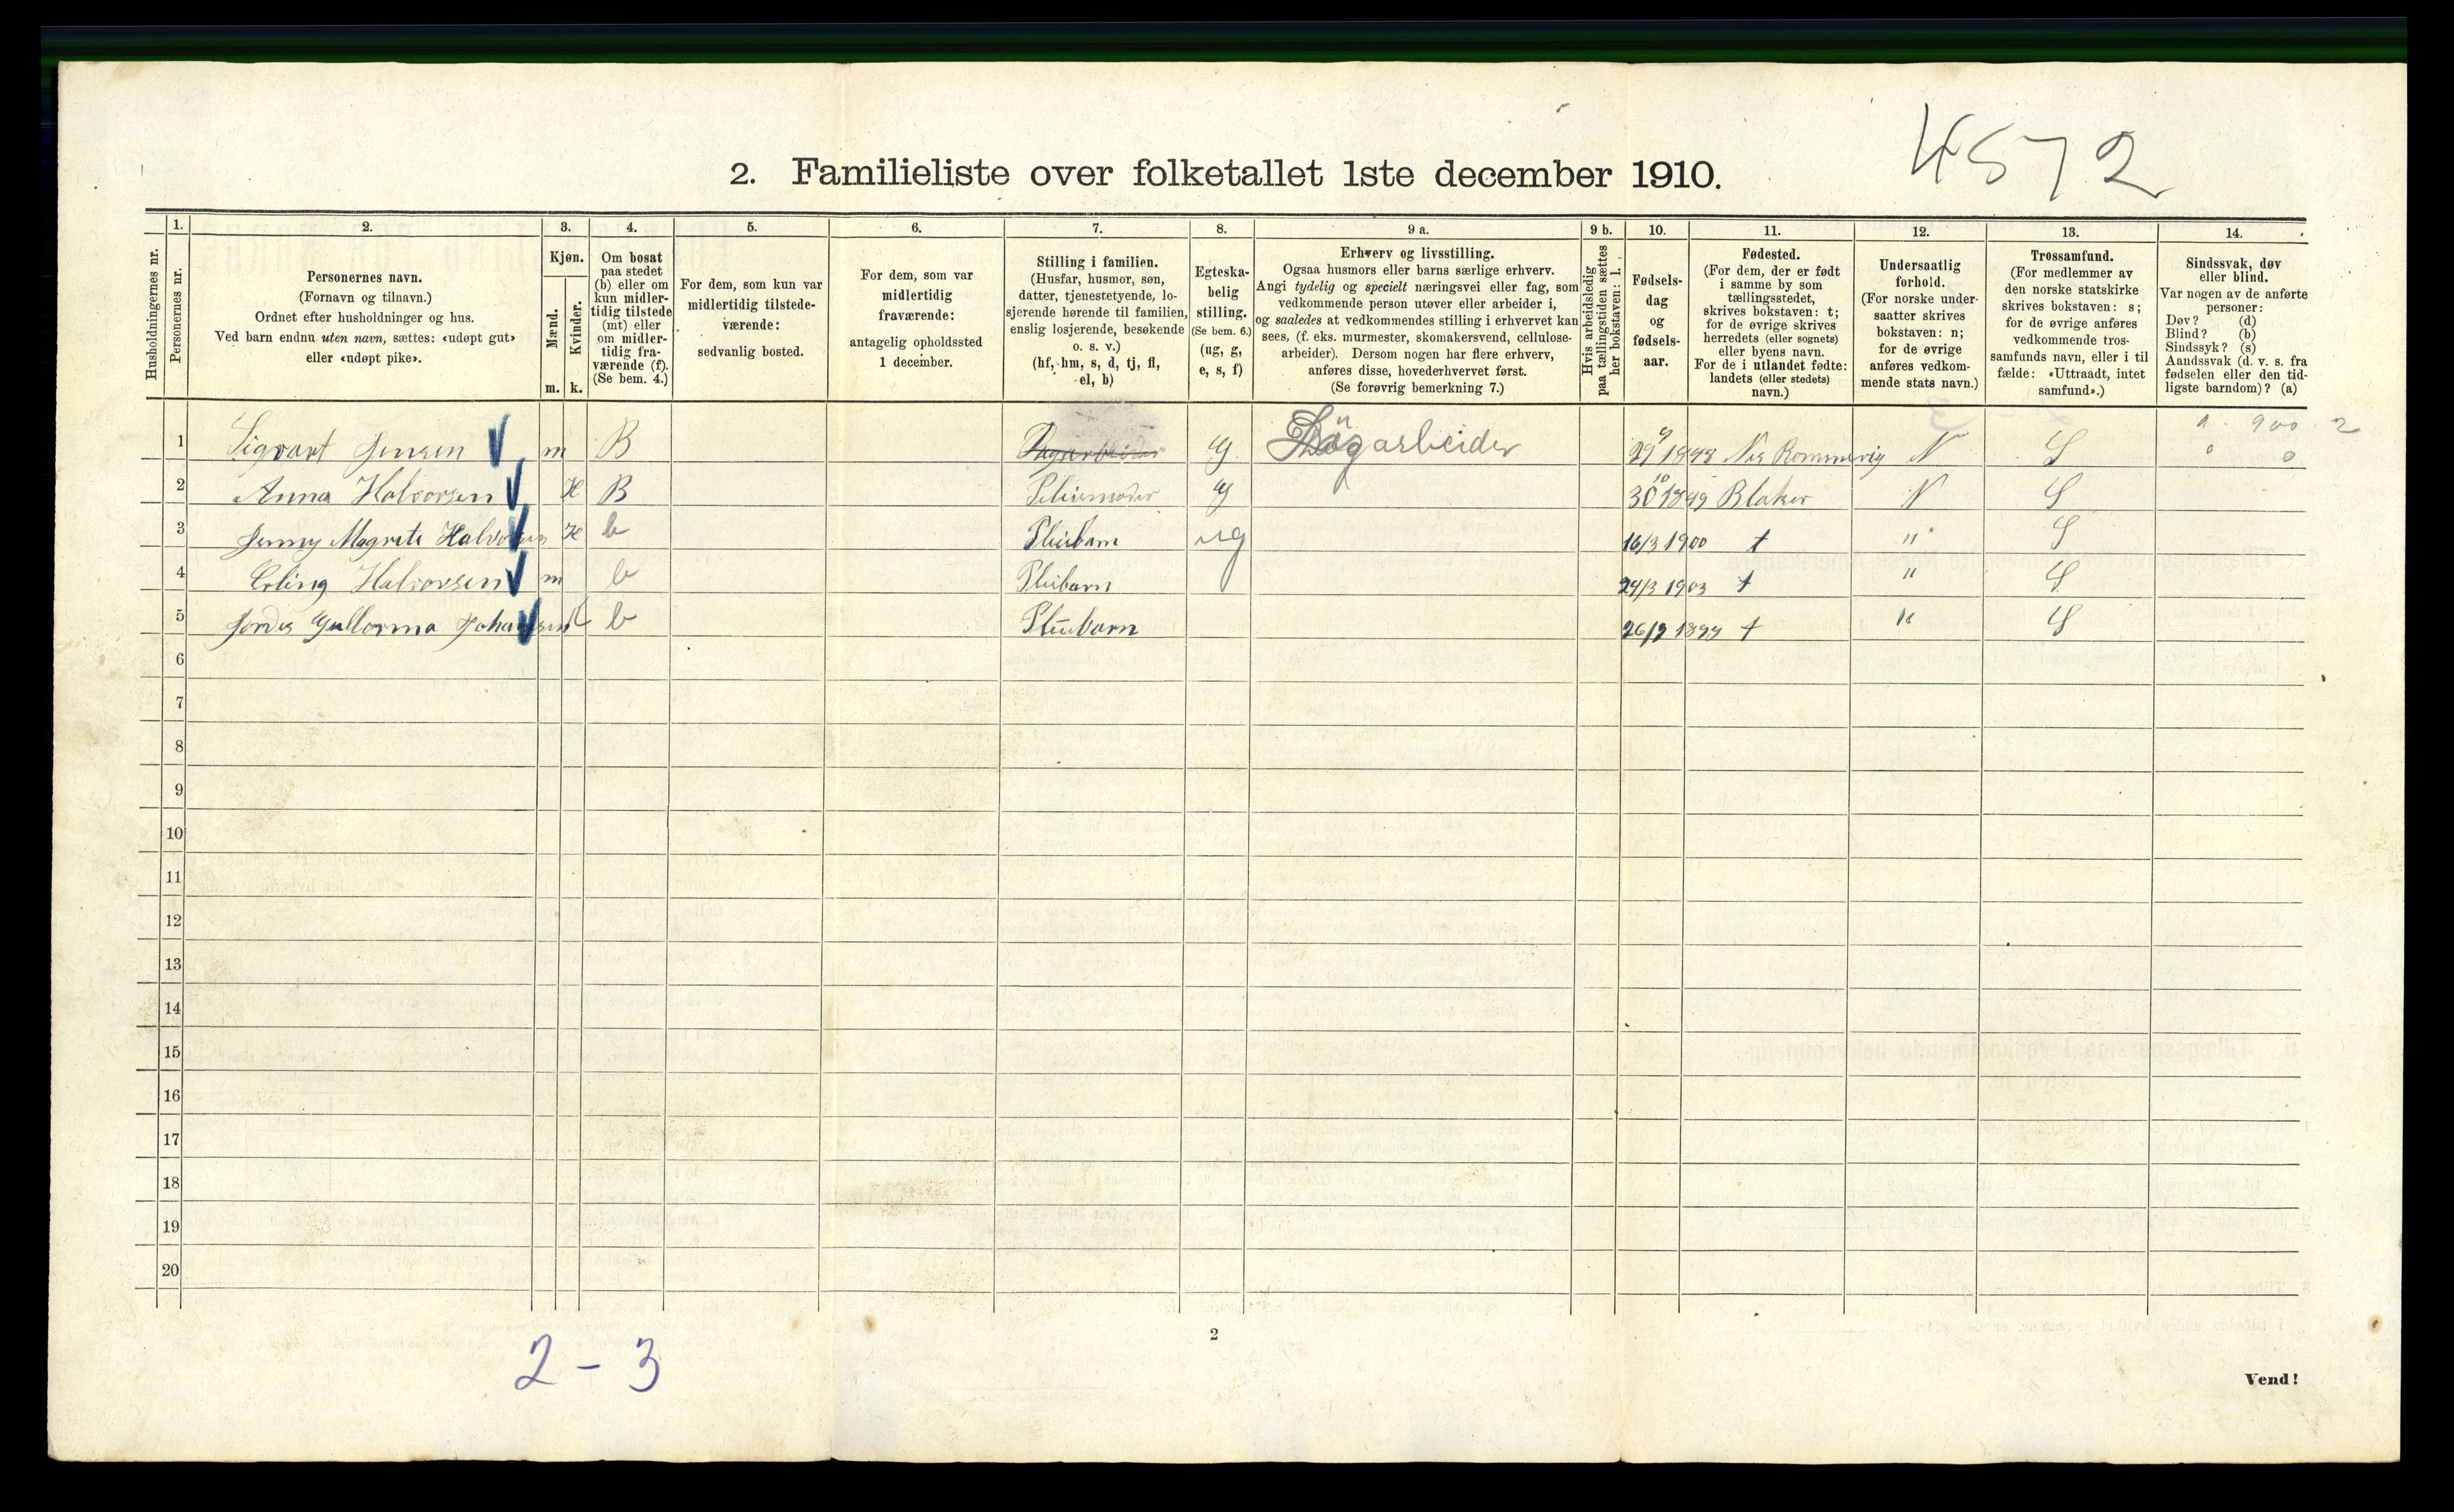 4572
2. Familieliste over folketallet 1ste december 1910.
Husholdningernes nr.
1. Personernes nr.
2. Personernes navn. (Fornavn og tilnavn.) Ordnet efter husholdninger og hus. Ved barn endnu uten navn, sættes: «udøpt gut» eller «udøpt pike».
3. Kjøn. Mænd. m. Kvinder. k.
4. Om bosat paa stedet (b) eller om kun midlertidig tilstede (mt) eller om midlertidig fraværende (f). (Se bem. 4.)
5. For dem, som kun var midlertidig tilstedeværende: sedvanlig bosted.
6. For dem, som var midlertidig fraværende: antagelig opholdssted 1 december.
7. Stilling i familien. (Husfar, husmor, søn, datter, tjenestetyende, losjerende hørende til familien, enslig losjerende, besøkende o. s. v.) (hf, hm, s, d, tj, fl, el, b)
8. Egteskabelig stilling. (Se bem. 6.) (ug, g, e, s, f)
9 a. Erhverv og livsstilling. Ogsaa husmors eller barns særlige erhverv. Angi tydelig og specielt næringsvei eller fag, som vedkommende person utøver eller arbeider i, og saaledes at vedkommendes stilling i erhvervet kan sees, (f. eks. murmester, skomakersvend, cellulose-arbeider). Dersom nogen har flere erhverv, anføres disse, hovederhvervet først. (Se forøvrig bemerkning 7.)
9 b. Hvis arbeidsledig paa tællingstiden sættes her bokstaven: l.
10. Fødselsdag og fødselsaar.
11. Fødested. (For dem, der er født i samme by som tællingsstedet, skrives bokstaven: t; for de øvrige skrives herredets (eller sognets) eller byens navn. For de i utlandet fødte: landets (eller stedets) navn.)
12. Undersaatlig forhold. (For norske undersaatter skrives bokstaven: n; for de øvrige anføres vedkommende stats navn.)
13. Trossamfund. (For medlemmer av den norske statskirke skrives bokstaven: s; for de øvrige anføres vedkommende trossamfunds navn, eller i tilfælde: «Uttraadt, intet samfund».)
14. Sindssvak, døv eller blind. Var nogen av de anførte personer: Døv? (d) Blind? (b) Sindssyk? (s) Aandssvak (d. v. s. fra fødselen eller den tidligste barndom)? (a)
1 Sigvart Jensen m B Dagarbeider g arbeider N S
2 Anna Halvorsen K B Pleiemoder g Blaker N S
3 Jenny Magrete Halvorsen K b Pleiebarn ug 16/3 1900 t " S
4 Erling Halvorsen m b Pleibarn 24/3 1903 t " S
5 Johansen k b Pleiebarn 26/9 1899 t " S
6
7
8
9
10
11
12
13
14
15
16
17
18
19
20
2 - 3
2
Vend!